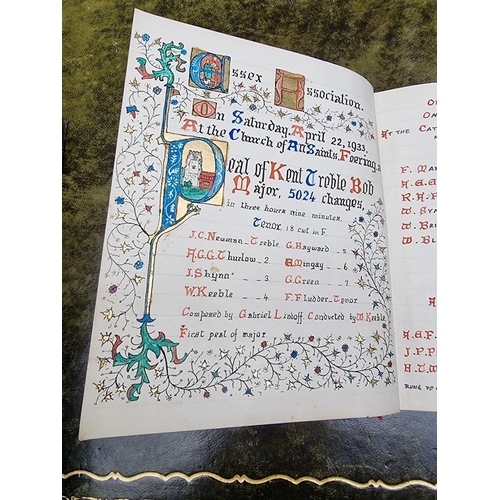 Essex Association.
On Saturday, April 22, 1933,
At the Church of All Saints, Feering,
Peal of Kent Treble Bob
Major, 5024 changes,
in three hours nine minutes.
Tenor, 18 cwt in F.
J.C. Newman _ Treble G. Hayward _ 5
A.G.G. Thurlow _ 2 E. Mingay _ 6
J. Shynn _ 3 G. Green _ 7
W. Keeble _ 4 F. F. Ludder _ Tenor.
Composed by Gabriel Lindoff. Conducted by W. Keeble
First peal of major.
AT THE CAT
F. MA
A.G.G
R.A.F
W. SY
W. BRI
W. BL
A
A.E.F.
J.P.P
H.T.W
RUNG TO